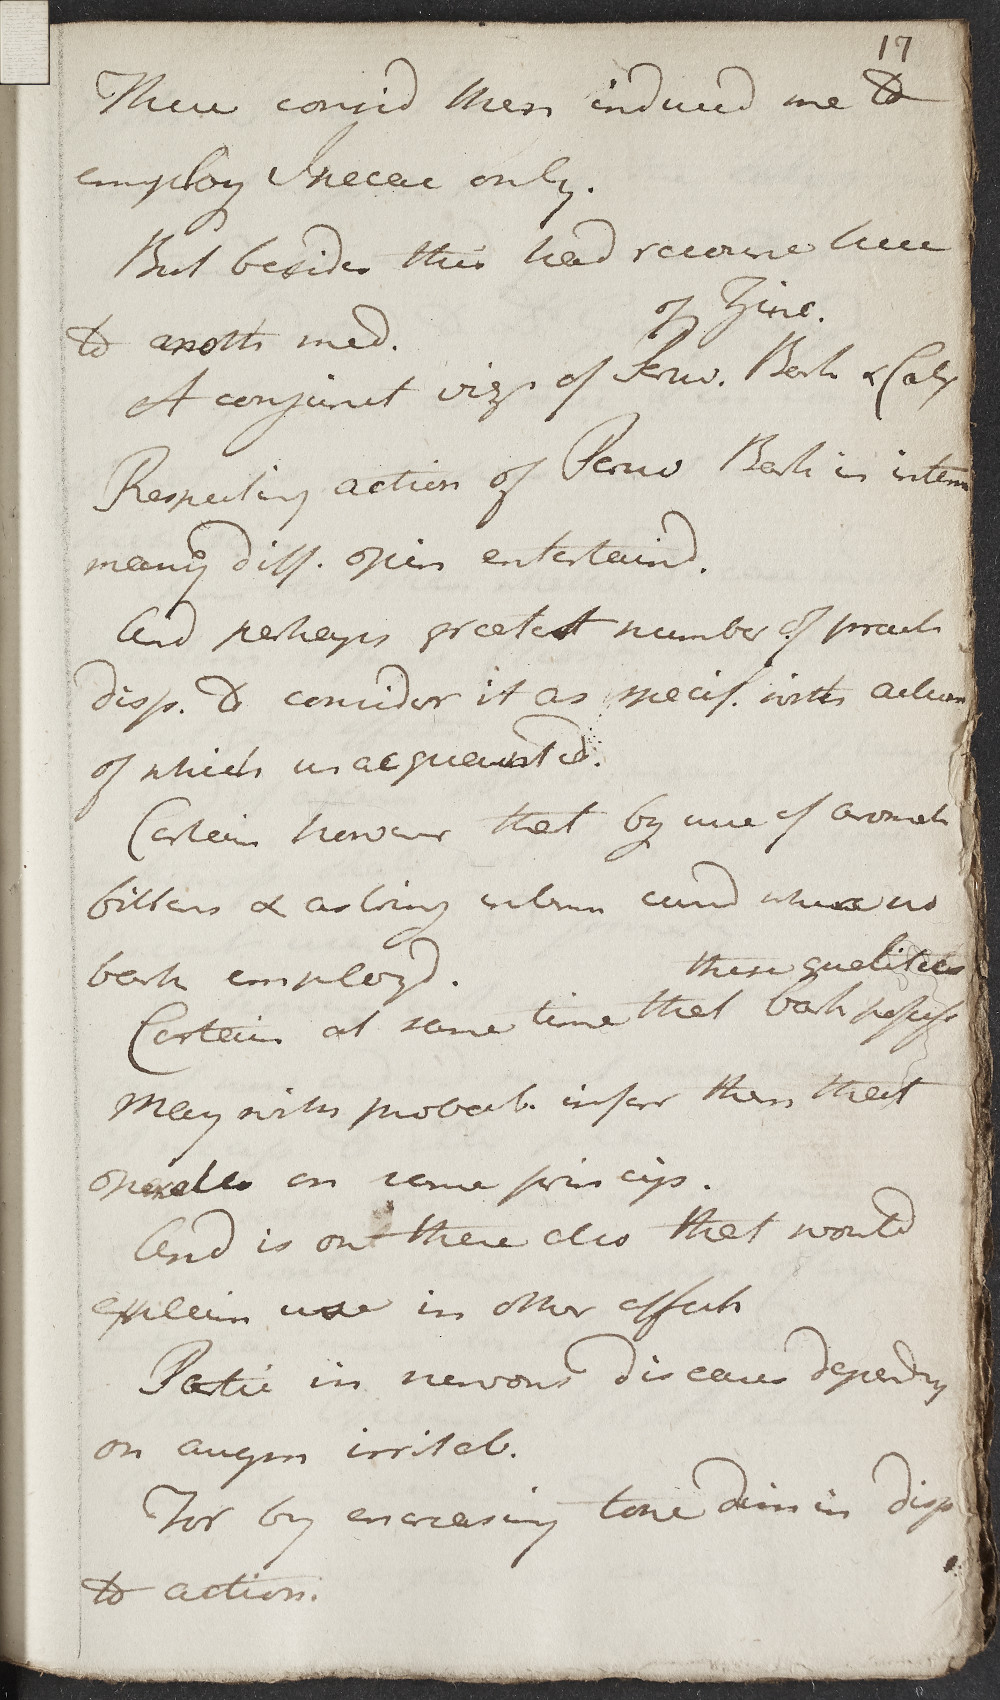 17
These consid then induced me to
employ Ipecac only.
But besides this had recourse here
to anoth med.
of Zinc.
A conjunct viz. of Peruv. Bark & Calx
Respecting action of Peruv Bark in interm
many diff. opin entertaind.
And perhaps greatest number of pract
disp. to consider it as specif. with action
of which unacquainted.
Certain however that by use of aromat
bitters & astring interm curd where no
bark employd.
these qualities
Certain at same time that bark possess
May with probab. infer then that
operates on same princip.
And is on these also that would
explain use in other affect
Partic in nervous diseases depending
on augm irritab.
For by encreasing tone dimin disp
to action.